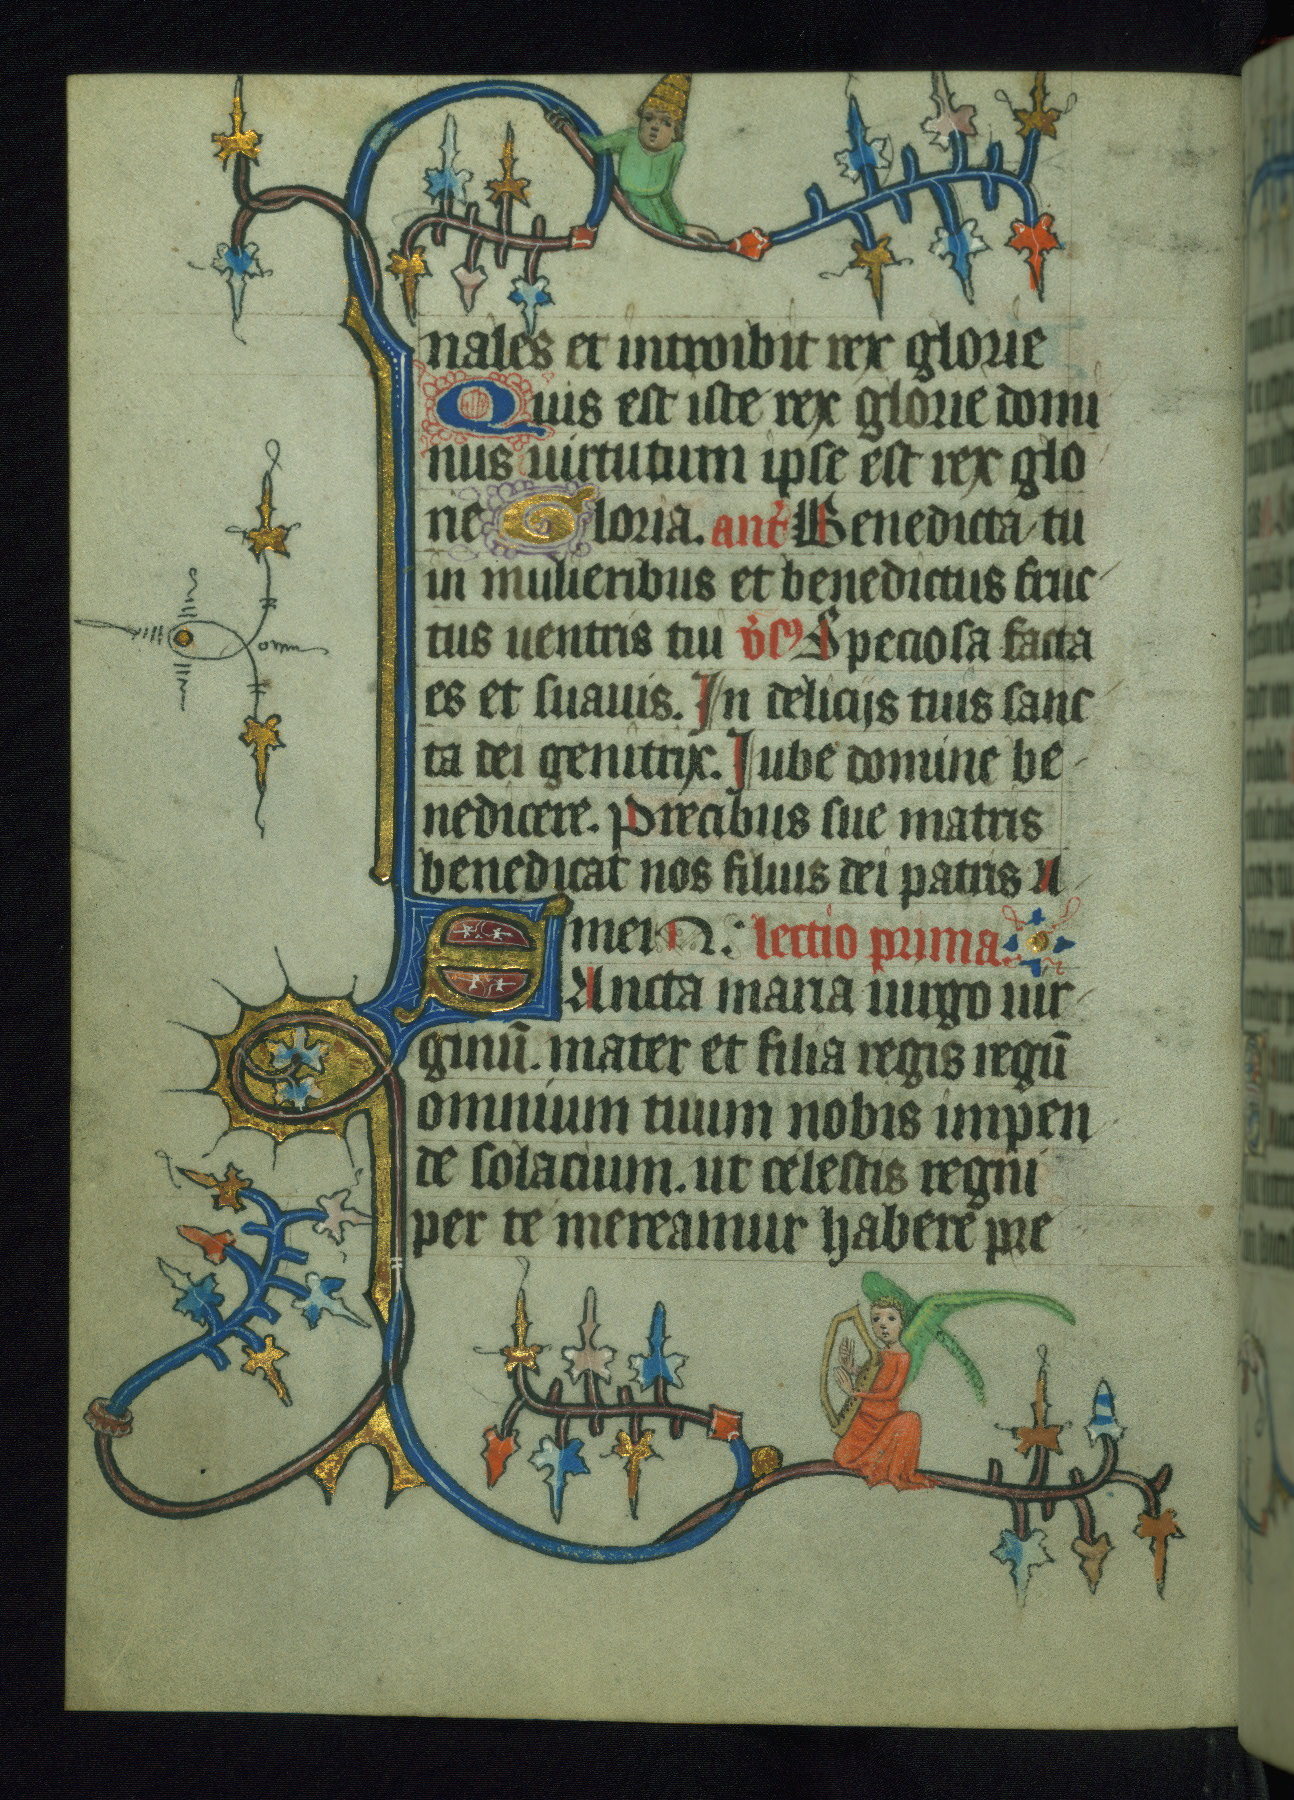 nales et introibit rex glorie
Quis est iste rex glorie domi
nus uirtutum ipse est rex glo
rie Gloria. ant' Benedicta tu
in mulieribus et benedictus fruc
tus uentris tui Speciosa facta
es et suauis. In delicijs tuis sanc
ta dei genitrix. Jube domine be
nedicere. Precibus sue matris
benedicat nos filius dei patris A
men. lectio prima
Sancta maria uirgo uir
ginū. mater et filia regis regū
omnium tuum nobis impen
de solacium. ut celestis regni
per te mereamur habere pre